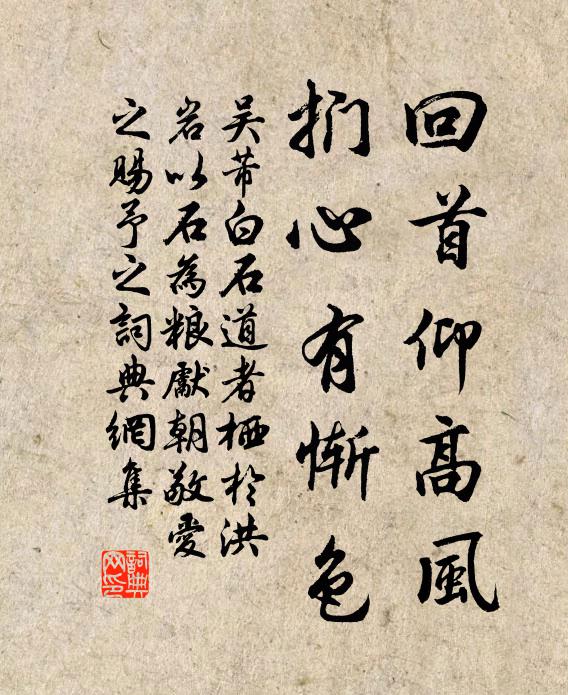 回首仰高風
捫心有慚色
吴芾白石道者栖於洪
岩以石為粮獻朝敬愛
之賜予之詞典網集
詞典网印